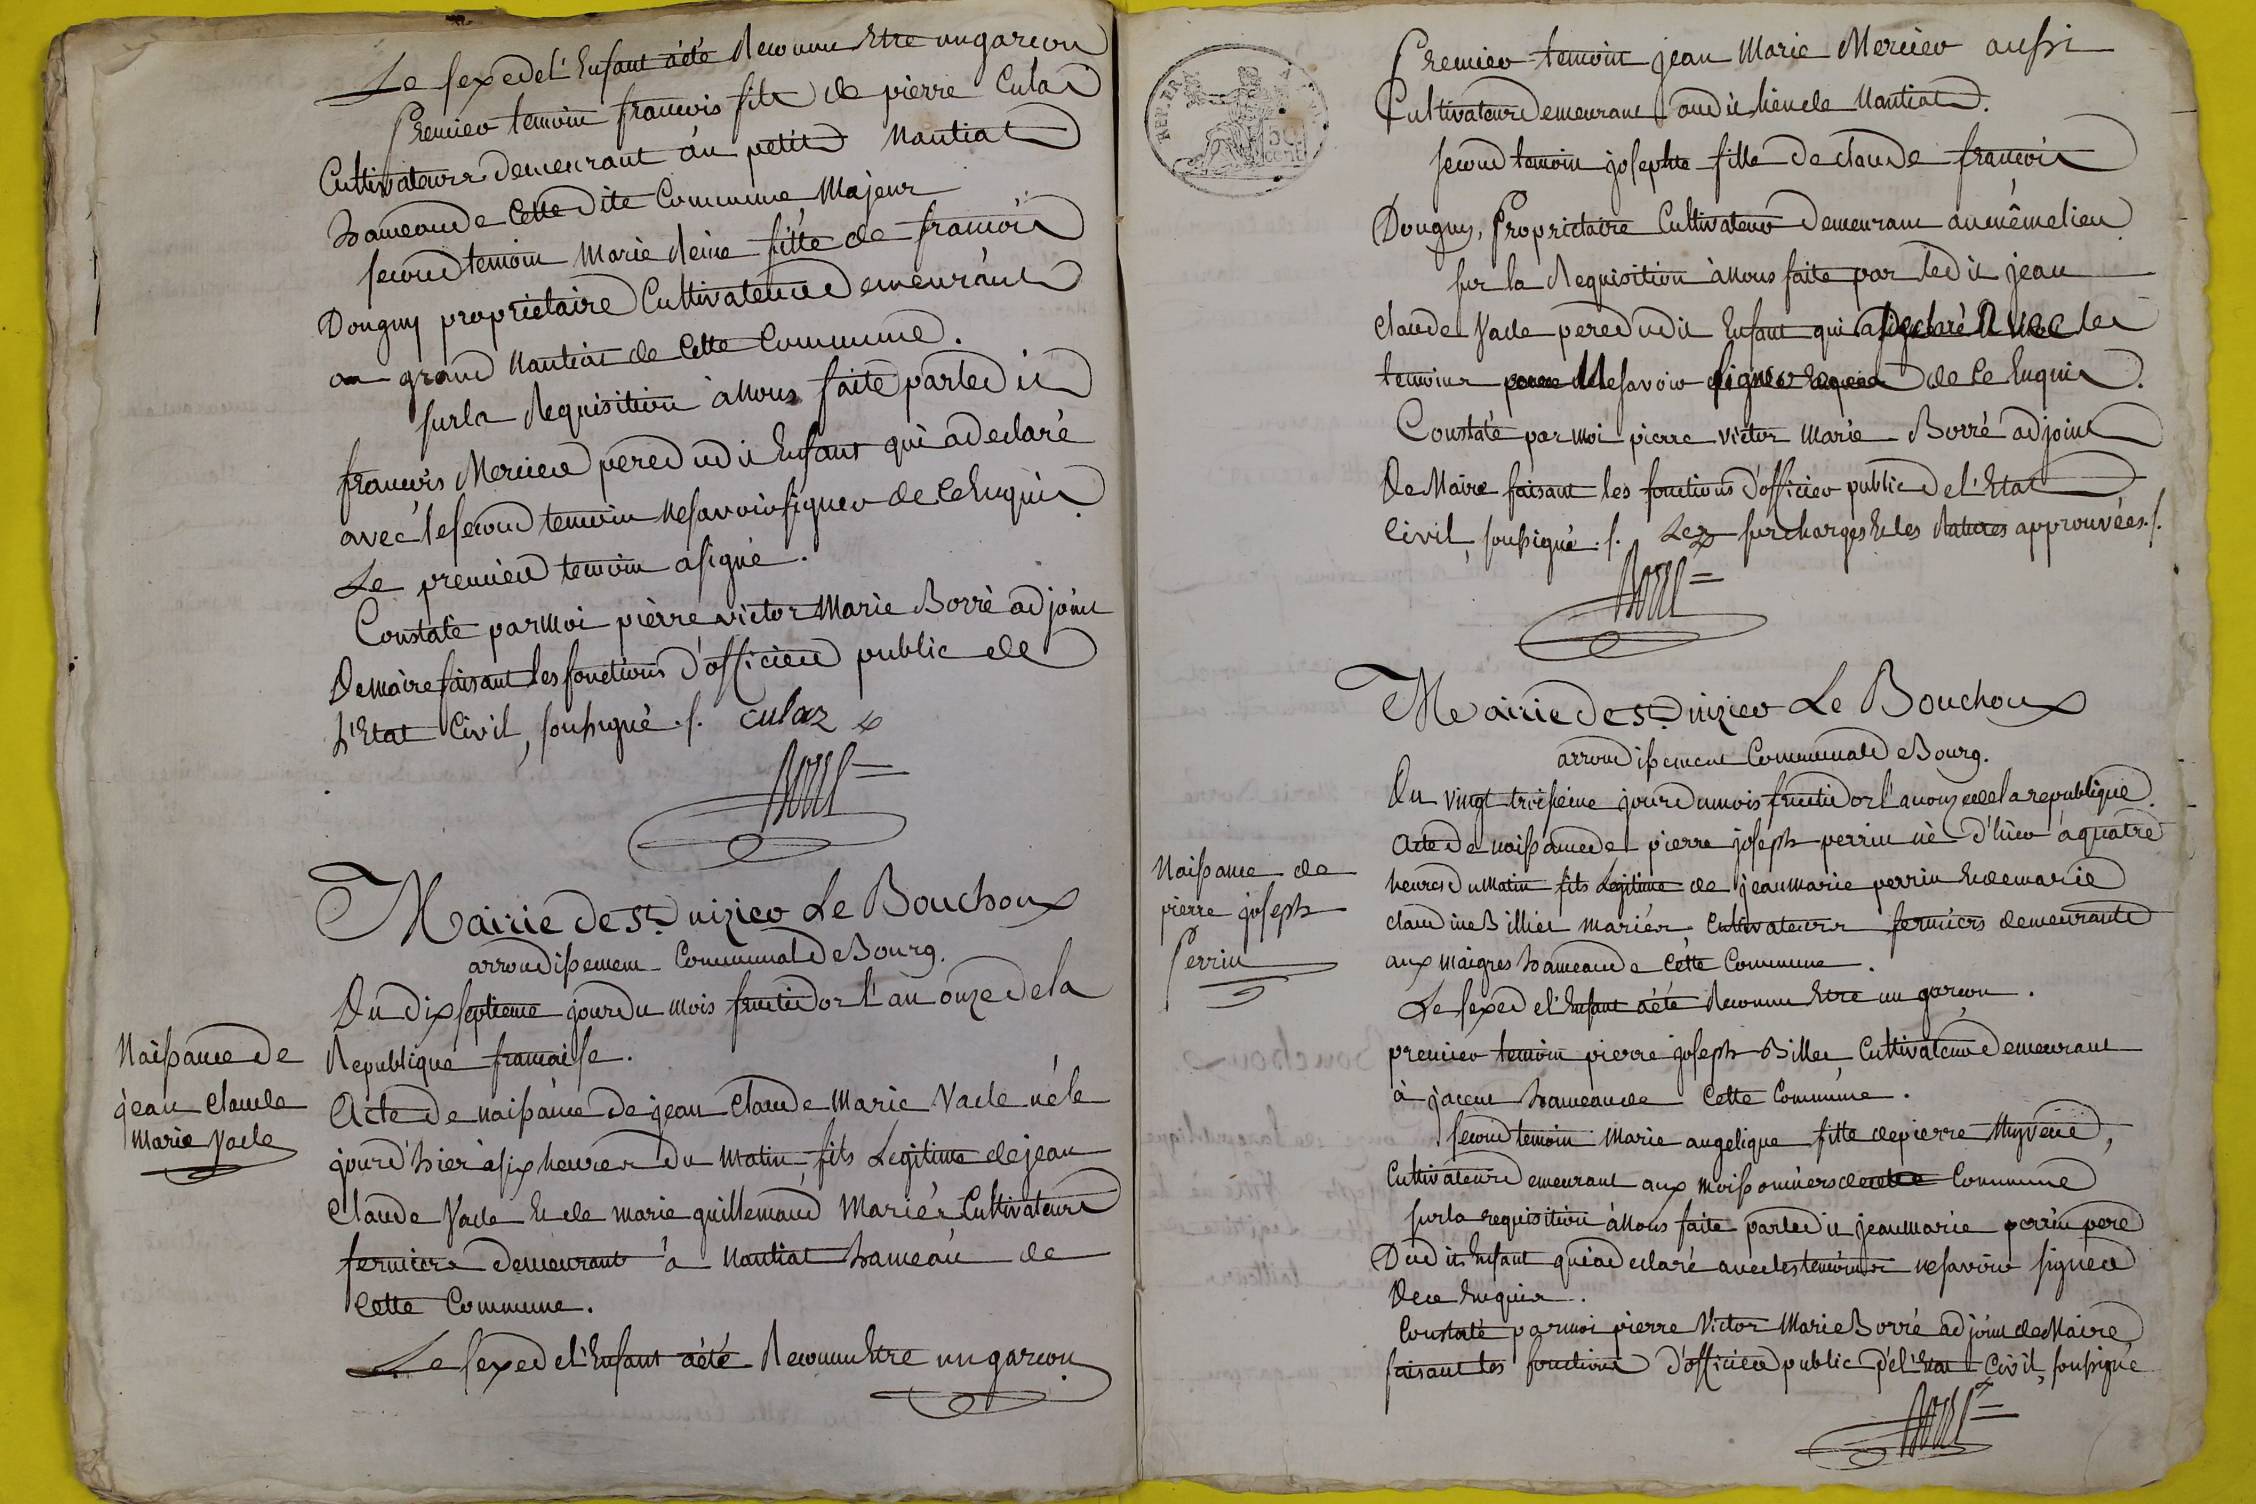 Le sexe de l'Enfant a été Reconnu Etre un garcon
Premier temoin francois fils de pierre Culas
Cultivateurs demeurant au petit Nantiat
hameau de Cette dite Commune Majeur
second temoin Marie Reine fille de francois
Donguy propriétaire Cultivateur Demeurant
au grand Nantiat de Cette Commune.
sur la Requisition à Nous faite par led it
francois Mercier pere dud it Enfant qui a declaré
avec le second temoin ne savoir signer de Ce Enquis.
Le premier temoin a signé.
Constaté par Moi pierre victor Marie Borré adjoint
De maire faisant les fonctions d'officier public de
L'Etat Civil, soussigné ./. Culaz
Borré
Mairie de St. nizier Le Bouchoux
arrondissement Communal de Bourg.
Du dix septieme jour du mois fructidor l'an onze de la
Republique francaise.
Naissance de
jean claude
marie Vacle
Acte de naissance de jean Claude Marie Vacle né le
jourd'hier à six heures du matin fils Legitime de jean
Claude Vacle Et de marie guillemaud Mariés Cultivateurs
fermiers demeurant à Nantiat hameau de
Cette Commune.
Le sexe de l'Enfant a été Reconnu Etre un garcon.
REP. FRA.
50
cent
Premier temoin jean Marie Mercier aussi
Cultivateur Demeurant aud it lieu de Nantiat.
second temoin josephte fille de claude francois
Donguy, Propriétaire Cultivateur Demeurant au même lieu
sur la Requisition à Nous faite par led it jean
claude Vacle pere dud it Enfant qui a declaré Avec les
temoins Ne savoir signer de Ce Enquis.
Constaté par moi pierre victor marie Borré adjoint
De Maire faisant les fonctions d'officier public de l'Etat
Civil, soussigné ./. Les surcharges Et les Ratures approuvées ./.
Borré
Mairie de St. nizier Le Bouchoux
arrondissement Communal de Bourg.
Du vingt troisieme jour du mois fructidor l'an onze de la republique.
Naissance de
pierre joseph
Perrin
Acte de naissance de pierre joseph perrin né d'hier à quatre
heures du Matin fils Legitime de jean marie perrin Et de marie
claudine Billiet mariés, Cultivateurs fermiers demeurants
aux maigres hameau de Cette Commune.
Le sexe de l'Enfant a été Reconnu Etre un garcon.
premier temoin pierre joseph Billet Cultivateur Demeurant
à hameau de Cette Commune.
second temoin Marie angelique fille de pierre
Cultivateur Demeurant aux moissonniers de cette Commune
sur la requisition à Nous faite par led it jean marie perrin pere
Dud it Enfant qui a declaré avec les temoins ne savoir signer
De ce Enquis.
Constaté par moi pierre Victor Marie Borré adjoint de Maire
faisant les fonctions d'officier public de l'Etat Civil, soussigné
Borré